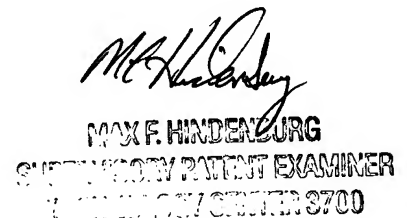 MF Hindenburg
MAX F. HINDENBURG
SUPERVISORY PATENT EXAMINER
TECHNOLOGY CENTER 3700